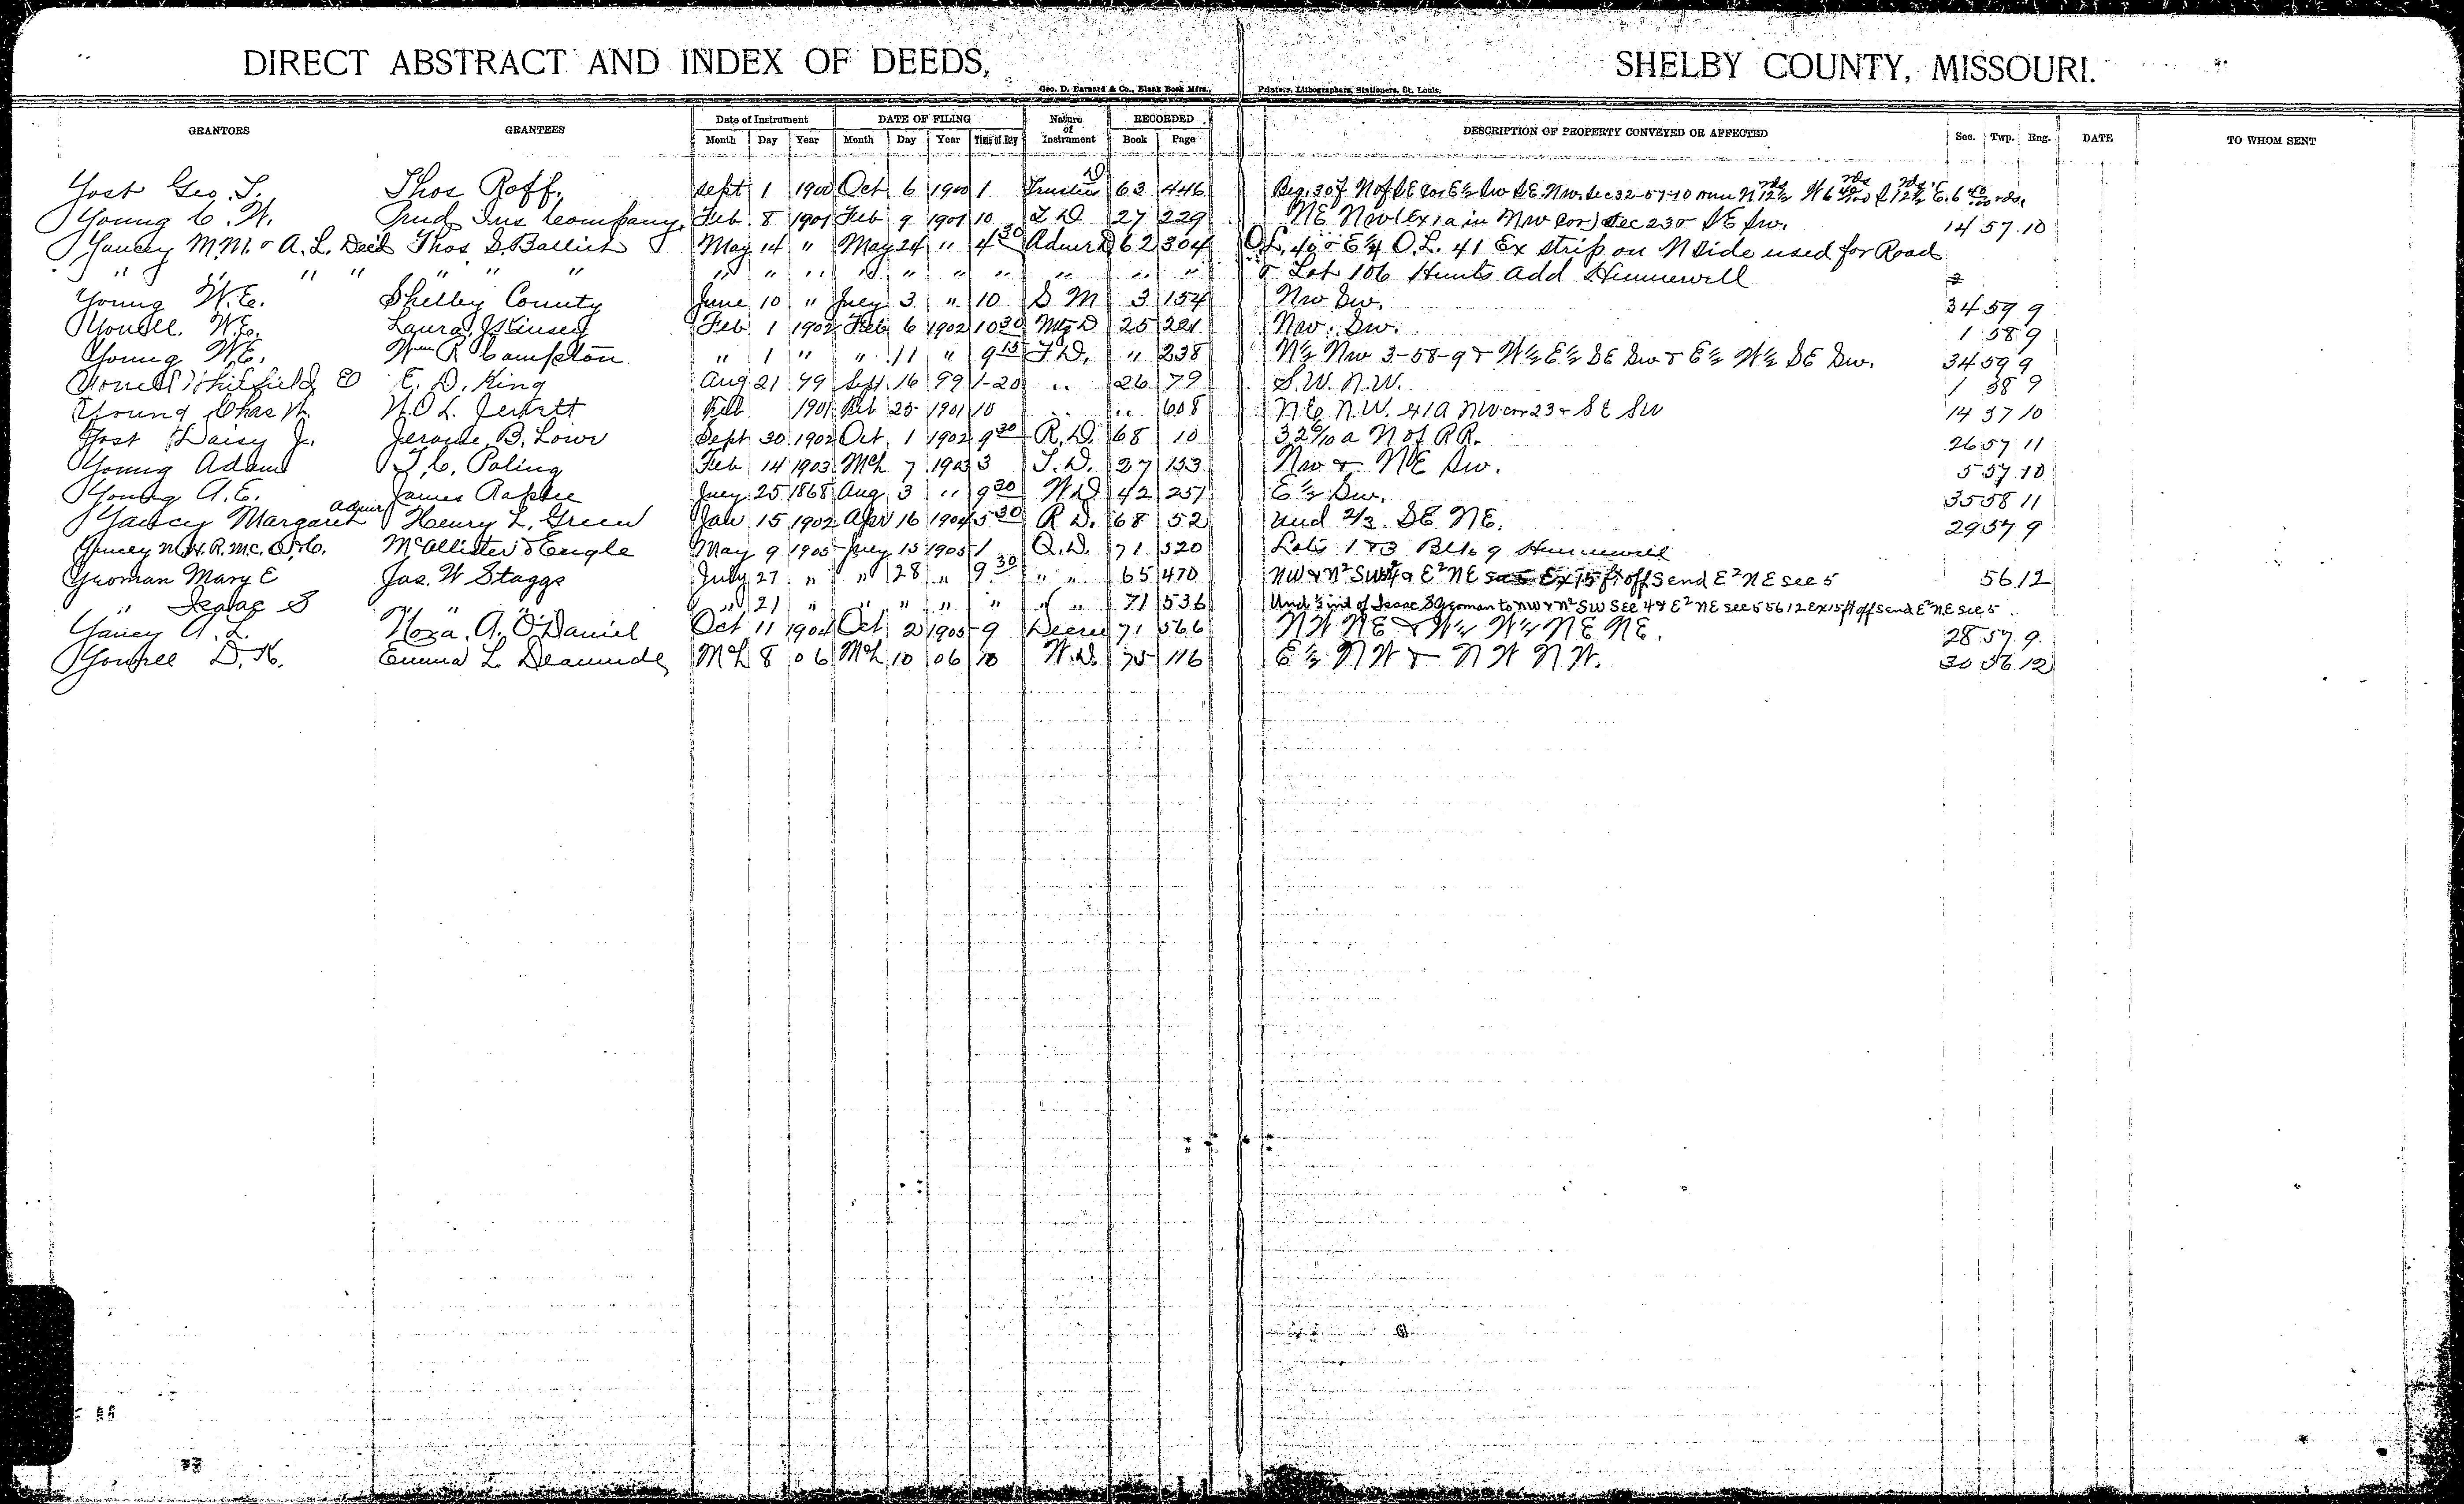 DIRECT ABSTRACT AND INDEX OF DEEDS, SHELBY COUNTY, MISSOURI.
Geo. D. Barnard & Co., Blank Book Mfrs., Printers, Lithographers, Stationers, St. Louis.
GRANTORS GRANTEES Date of Instrument DATE OF FILING Nature of Instrument RECORDED DESCRIPTION OF PROPERTY CONVEYED OR AFFECTED Sec. Twp. Rng. DATE TO WHOM SENT
Month Day Year Month Day Year Time of Day Book Page
Yost Geo. T. Thos Roff. Sept 1 1900 Oct 6 1900 1 Trustees D 63 446 Beg. 30 f N of SE cor E½ Sw SE Nw. Sec 32-57-10 run N 12½ rds W 6 40/100 rds S 12½ rds E. 6 40/100 rds.
Young C. W. Prud Ins Company. Feb 8 1901 Feb 9 1901 10 T D 27 229 NE Nw (Ex 1 a in Nw cor) Sec 23 & SE Sw. 14 57 10
Yancey M.M. & A. L. Dec'd Thos S. May 14 " May 24 " 4 30 Admr D 62 304 O.L. 40 & E¼ O.L. 41 Ex strip on N side used for Road
" " " " " " " " " " " " " " " " " & Lot 106 Hunts Add Hunnewell
Young W. E. Shelby County June 10 " July 3 " 10 S M 3 154 Nw Sw. 34 59 9
Youell. W.E. Laura J Kinsey Feb 1 1902 Feb 6 1902 10 30 Mtg D 25 221 Nw. Sw. 1 58 9
Young W.E. Wm R Campton " 1 " " 11 " 9 15 T D. " 238 N½ Nw 3-58-9 & W½ E½ SE Sw & E½ W½ SE Sw. 34 59 9
Youell Whitfield E. D. King Aug 21 99 Sept 16 99 1-20 " 26 79 S.W. N.W. 1 58 9
Young Chas W. N.O L. Jewett Feb 1901 Feb 25 1901 10 " " 608 NE N.W. 1 A NW cor 23 & SE SW 14 57 10
Yost Daisy J. Jerome B. Lowe Sept 30 1902 Oct. 1 1902 9 30 R. D. 68 10 a N of RR. 26 57 11
Young Adam T. C. Poling Feb 14 1903 Mch 7 1903 3 T. D. 27 153 Nw & NE Sw. 5 57 10
Young A. E. James July 25 1868 Aug 3 " 9 30 W D 42 251 E½ Sw. 35 58 11
Yancey Margaret admr Henry L. Green Jan 15 1902 Apr 16 1904 5 30 R D. 68 52 Und 2/3 SE NE. 29 57 9
Yancey McAllister & Engle May 9 1905 July 15 1905 1 Q. D. 71 520 Lots 1 & 3 Blk 9 Hunnewell
Yroman Mary E Jas. W Staggs July 27 " " 28 " 9 30 " " 65 470 NW & N² SW E² NE Ex 15 ft off S end E² NE sec 5 56 12
" Isaac S " " " " 21 " " " " " " " 71 536 Und int of Isaac S Yroman to NW & N² SW Sec 4 & E² NE sec 5 56 12 Ex 15 ft off S end E² NE sec 5
Yancy A. L. Noza. A. O'Daniel Oct 11 1904 Oct 2 1905 9 Decree 71 566 NW NE & W½ W½ NE NE. 28 57 9
Youell D. K. Emma L. Mch 8 06 Mch 10 06 10 W.D. 75 116 E½ NW & NW NW. 30 56 12